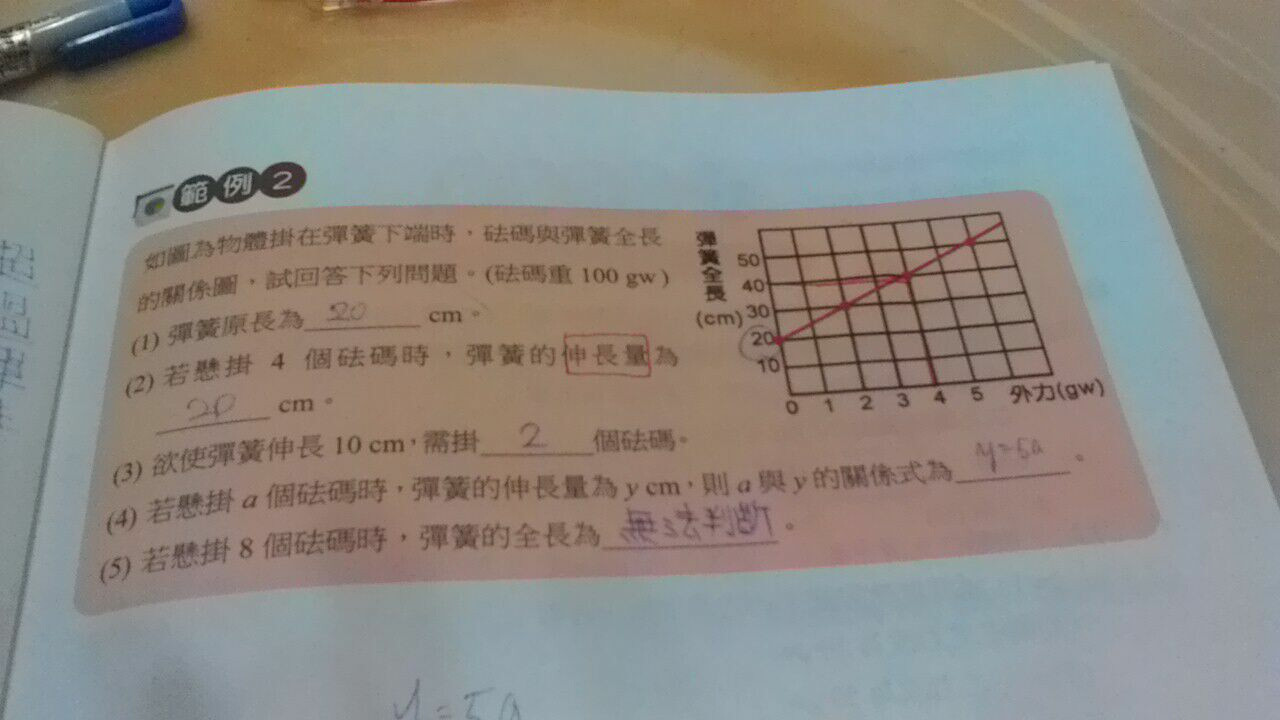 範例2
如圖為物體掛在彈簧下端時，砝碼與彈簧全長
的關係圖，試回答下列問題。(砝碼重 100 gw)
(1) 彈簧原長為 20 cm。
(2) 若懸掛 4 個砝碼時，彈簧的伸長量為
20 cm。
(3) 欲使彈簧伸長 10 cm，需掛 2 個砝碼。
(4) 若懸掛 a 個砝碼時，彈簧的伸長量為 y cm，則 a 與 y 的關係式為 y=5a。
(5) 若懸掛 8 個砝碼時，彈簧的全長為 無法判斷。
彈簧全長
(cm)
50
40
30
20
10
0 1 2 3 4 5 外力(gw)
y=5a